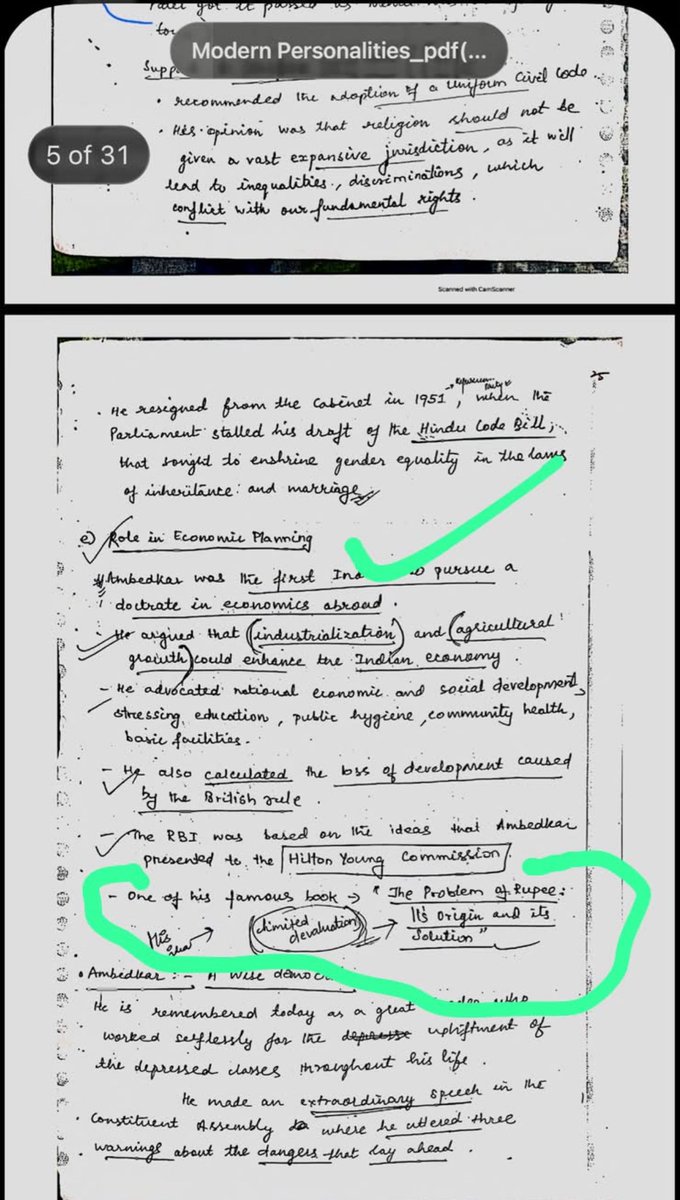 Patel got it passed as
Modern Personalities_pdf(...
Supp
• recommended the adoption of a Uniform Civil Code.
5 of 31
• His opinion was that religion should not be
given a vast expansive jurisdiction, as it will
lead to inequalities, discriminations, which
conflict with our fundamental rights.
Scanned with CamScanner
25
• He resigned from the Cabinet in 1951, when the
Parliament stalled his draft of the Hindu Code Bill,
that sought to enshrine gender equality in the laws
of inheritance and marriage
e) Role in Economic Planning
Ambedkar was the first Ind to pursue a
doctrate in economics abroad.
- He argued that (industrialization) and (agricultural
growth) could enhance the Indian economy.
- He advocated national economic and social development,
stressing education, public hygiene, community health,
basic facilities.
- He also calculated the loss of development caused
by the British rule.
- The RBI was based on the ideas that Ambedkar
presented to the Hilton Young Commission.
- One of his famous book → "The Problem of Rupee:
Its Origin and its
Solution"
His → limited devaluation →
• Ambedkar :- A wise democ
He is remembered today as a great who
worked selflessly for the upliftment of
the depressed classes throughout his life.
He made an extraordinary speech in the
• Constituent Assembly where he uttered three
• warnings about the dangers that lay ahead.